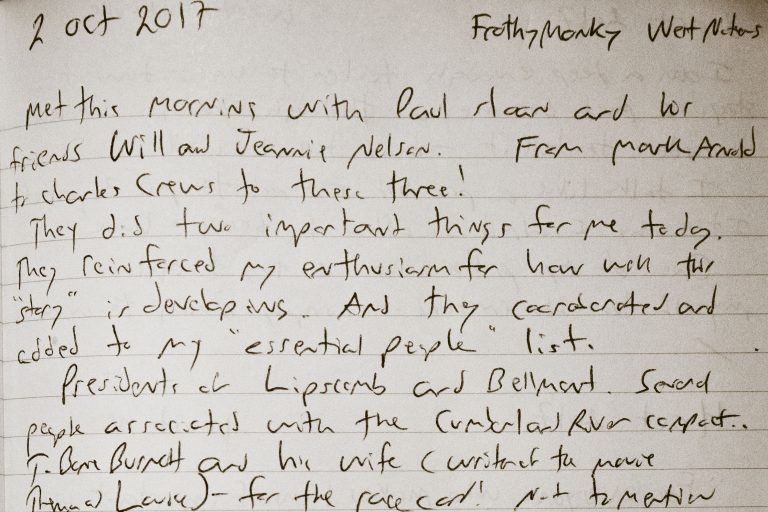 2 Oct 2017 Frothy Monkey West Nations
met this morning with Paul Sloan and his
friends Will and Jeannie Nelson. From Mark Arnold
to Charles Crews to these three!
They did two important things for me today.
They reinforced my enthusiasm for how well this
"story" is developing. And they corroborated and
added to my "essential people" list.
Presidents of Lipscomb and Bellmont. Several
people associated with the Cumberland River compact.
T. Bone Burnett and his wife (writer of the movie
Thelma & Louise) - for the race card! Not to mention